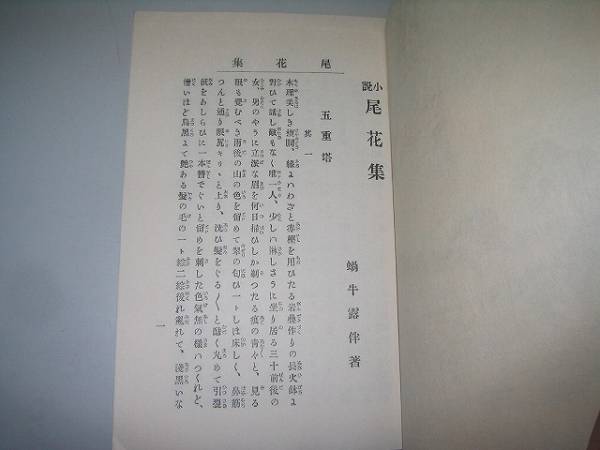 尾花集
小説 尾花集
蝸牛露伴著
五重塔
其一
木理美しき槻胴、縁にハわざと赤樫を用ひたる岩畳作りの長火鉢に
対ひて話し敵もなく唯一人、少しハ淋しさうに坐り居る三十前後の
女、男のやうに立派な眉を何日掃ひしか剃つたる痕の青々と、見る
眼も覚むべき雨後の山の色を留めて翠の匂ひ一トしほ床しく、鼻筋
つんと通り眼尻キリヽと上り、洗ひ髪をぐる〳〵と酷く丸めて引裂
紙をあしらひに一本簪でぐいと留めを刺した色気無の様ハつくれど、
憎いほど烏黒にて艶ある髪の毛の一ト綜二綜後れ乱れて、浅黒いな
一